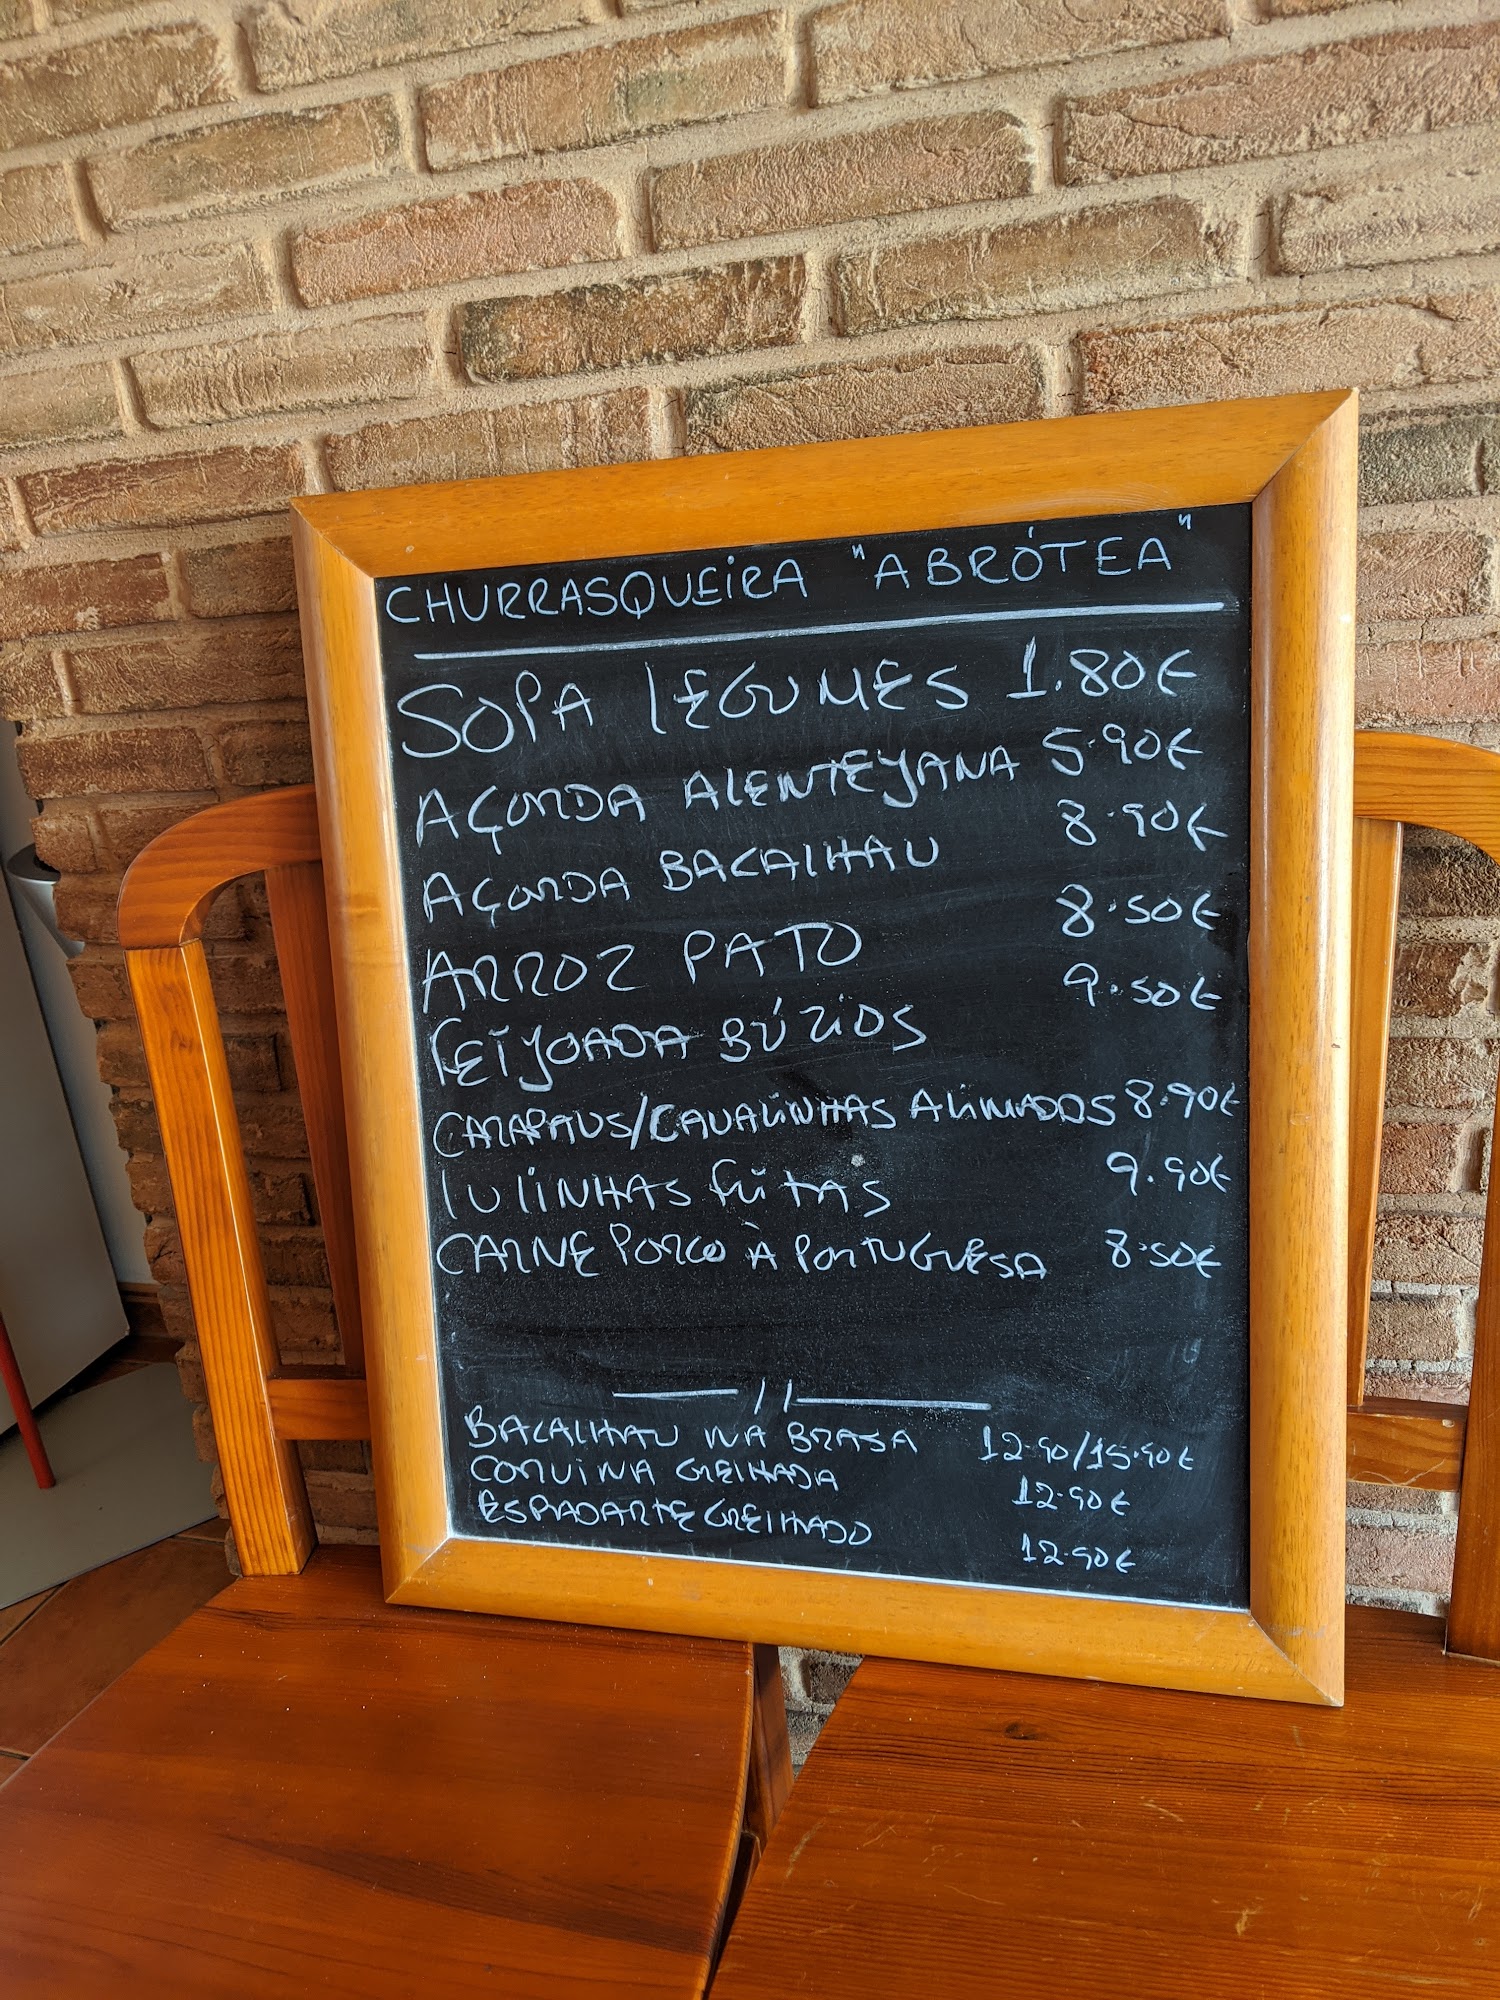 CHURRASQUEIRA "ABRÓTEA"
SOPA LEGUMES 1.80€
AÇORDA ALENTEJANA 5.90€
AÇORDA BACALHAU 8.90€
ARROZ PATO 8.50€
FEIJOADA BÚZIOS 9.50€
CARAPAUS/CAVALINHAS ALIMADOS 8.90€
LULINHAS FRITAS 9.90€
CARNE PORCO À PORTUGUESA 8.50€
BACALHAU NA BRASA 12.90/15.90€
CORVINA GRELHADA 12.90€
ESPADARTE GRELHADO 12.90€